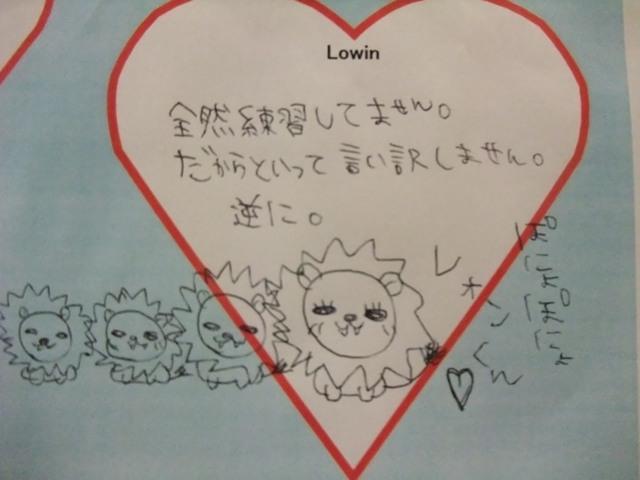 Lowin
全然練習してません。
だからといって言い訳しません。
逆に。
レオンくん♡
ぽにょぽにょ